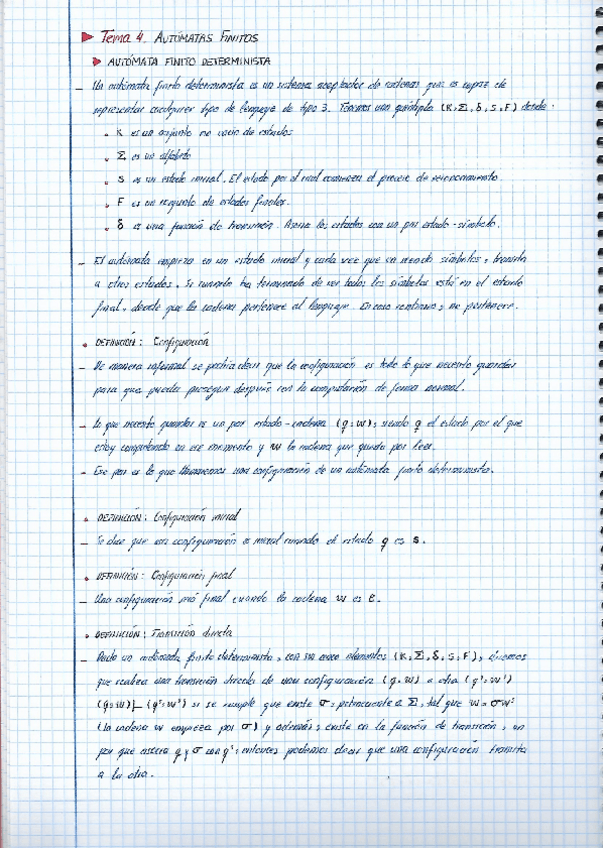 Tema 4. AUTÓMATAS FINITOS
AUTÓMATA FINITO DETERMINISTA
- Un autómata finito determinista es un sistema aceptador de cadenas que es capaz de
representar cualquier tipo de lenguaje de tipo 3. Tenemos una quíntupla (K, Σ, δ, s, F) donde:
• K es un conjunto no vacío de estados
• Σ es un alfabeto
• s es un estado inicial. El estado por el cual comienza el proceso de reconocimiento
• F es un conjunto de estados finales.
• δ es una función de transición. Asocia los estados con un par estado-símbolo.
- El autómata empieza en un estado inicial y cada vez que va leyendo símbolos, transita
a otros estados. Si cuando ha terminado de ver todos los símbolos está en el estado
final, decide que la cadena pertenece al lenguaje. En caso contrario, no pertenece.
• DEFINICIÓN: Configuración
- De manera informal se podría decir que la configuración es todo lo que necesito guardar
para que pueda proseguir después con la computación de forma normal.
- Lo que necesito guardar es un par estado-cadena (q, w), siendo q el estado por el que
estoy computando en ese momento y w la cadena que queda por leer.
- Ese par es lo que llamaremos una configuración de un autómata finito determinista.
• DEFINICIÓN: Configuración inicial
- Se dice que una configuración es inicial cuando el estado q es s.
• DEFINICIÓN: Configuración final
- Una configuración será final cuando la cadena w es ε.
• DEFINICIÓN: Transición directa
- Dado un autómata finito determinista, con sus cinco elementos (K, Σ, δ, s, F), diremos
que realiza una transición directa de una configuración (q, w) a otra (q', w')
(q, w)|_ (q', w') si se cumple que existe σ, perteneciente a Σ, tal que w = σw'
(la cadena w empieza por σ) y además, existe en la función de transición, un
par que asocia q y σ con q', entonces podemos decir que una configuración transita
a la otra.